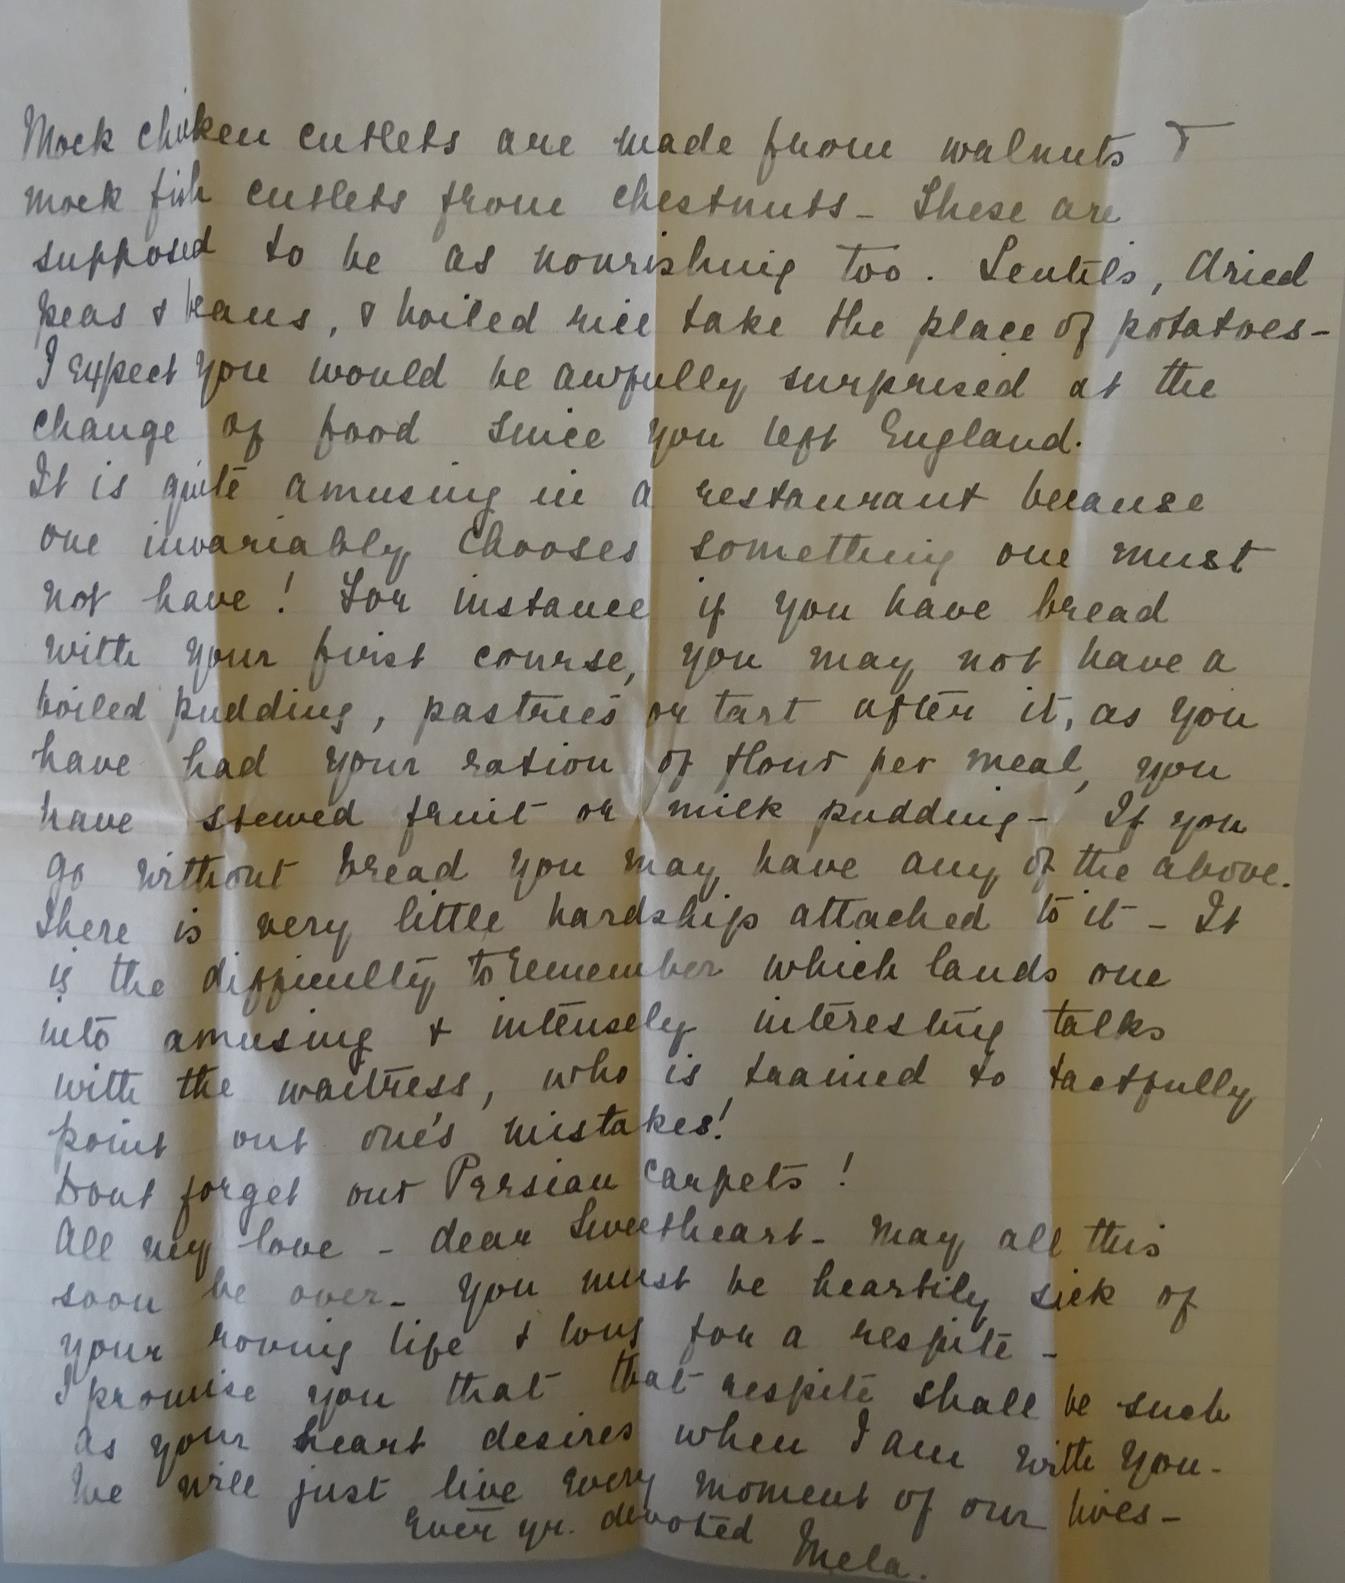 Mock chicken cutlets are made from walnuts &
mock fish cutlets from chestnuts - These are
supposed to be as nourishing too. Lentils, dried
peas & beans, & boiled rice take the place of potatoes -
I expect you would be awfully surprised at the
change of food since you left England.
It is quite amusing in a restaurant because
one invariably chooses something one must
not have! For instance if you have bread
with your first course, you may not have a
boiled pudding, pastries or tart after it, as you
have had your ration of flour per meal, you
have stewed fruit or milk pudding - If you
go without bread you may have any of the above.
There is very little hardship attached to it - It
is the difficulty to remember which lands one
into amusing & intensely interesting talks
with the waitress, who is trained to tactfully
point out one's mistakes!
Dont forget our Persian Carpets!
All my love - dear Sweetheart - May all this
soon be over - You must be heartily sick of
your roving life & long for a respite -
I promise you that that respite shall be such
as your heart desires when I am with you -
We will just live every moment of our lives -
Ever yr. devoted
Mela.